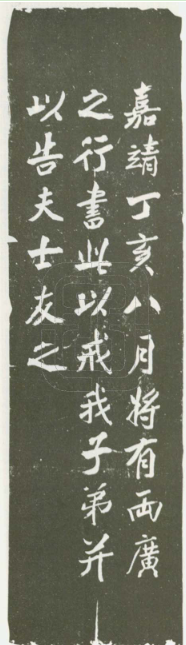 嘉靖丁亥八月將有兩廣
之行書此以戒我子弟并
以告夫士友之